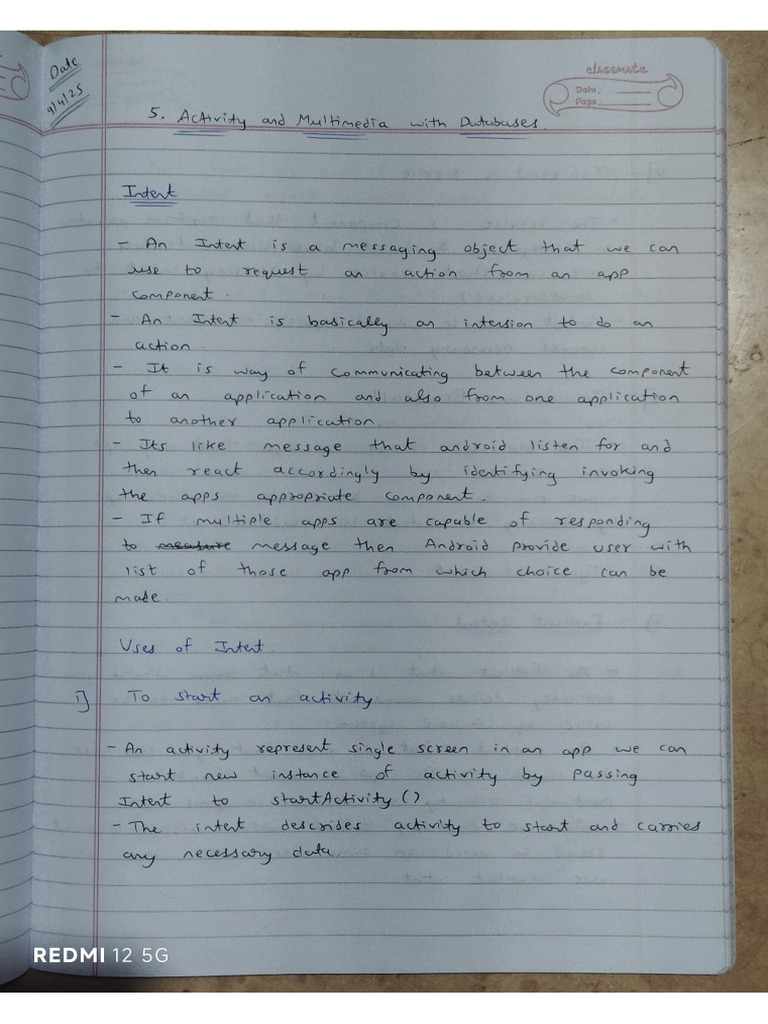 Date
9/4/25
classmate
Date
Page
5. Activity and Multimedia with Databases.
Intent
- An Intent is a messaging object that we can
use to request an action from an app
component.
- An Intent is basically an intension to do an
action.
- It is way of communicating between the component
of an application and also from one application
to another application.
- Its like message that android listen for and
then react accordingly by identifying invoking
the apps appropriate component.
- If multiple apps are capable of responding
to measure message then Android provide user with
list of those app from which choice can be
made.
Uses of Intent.
1] To start an activity
- An activity represent single screen in an app we can
start new instance of activity by passing
Intent to startActivity().
- The intent descrides activity to start and carries
any necessary data.
REDMI 12 5G